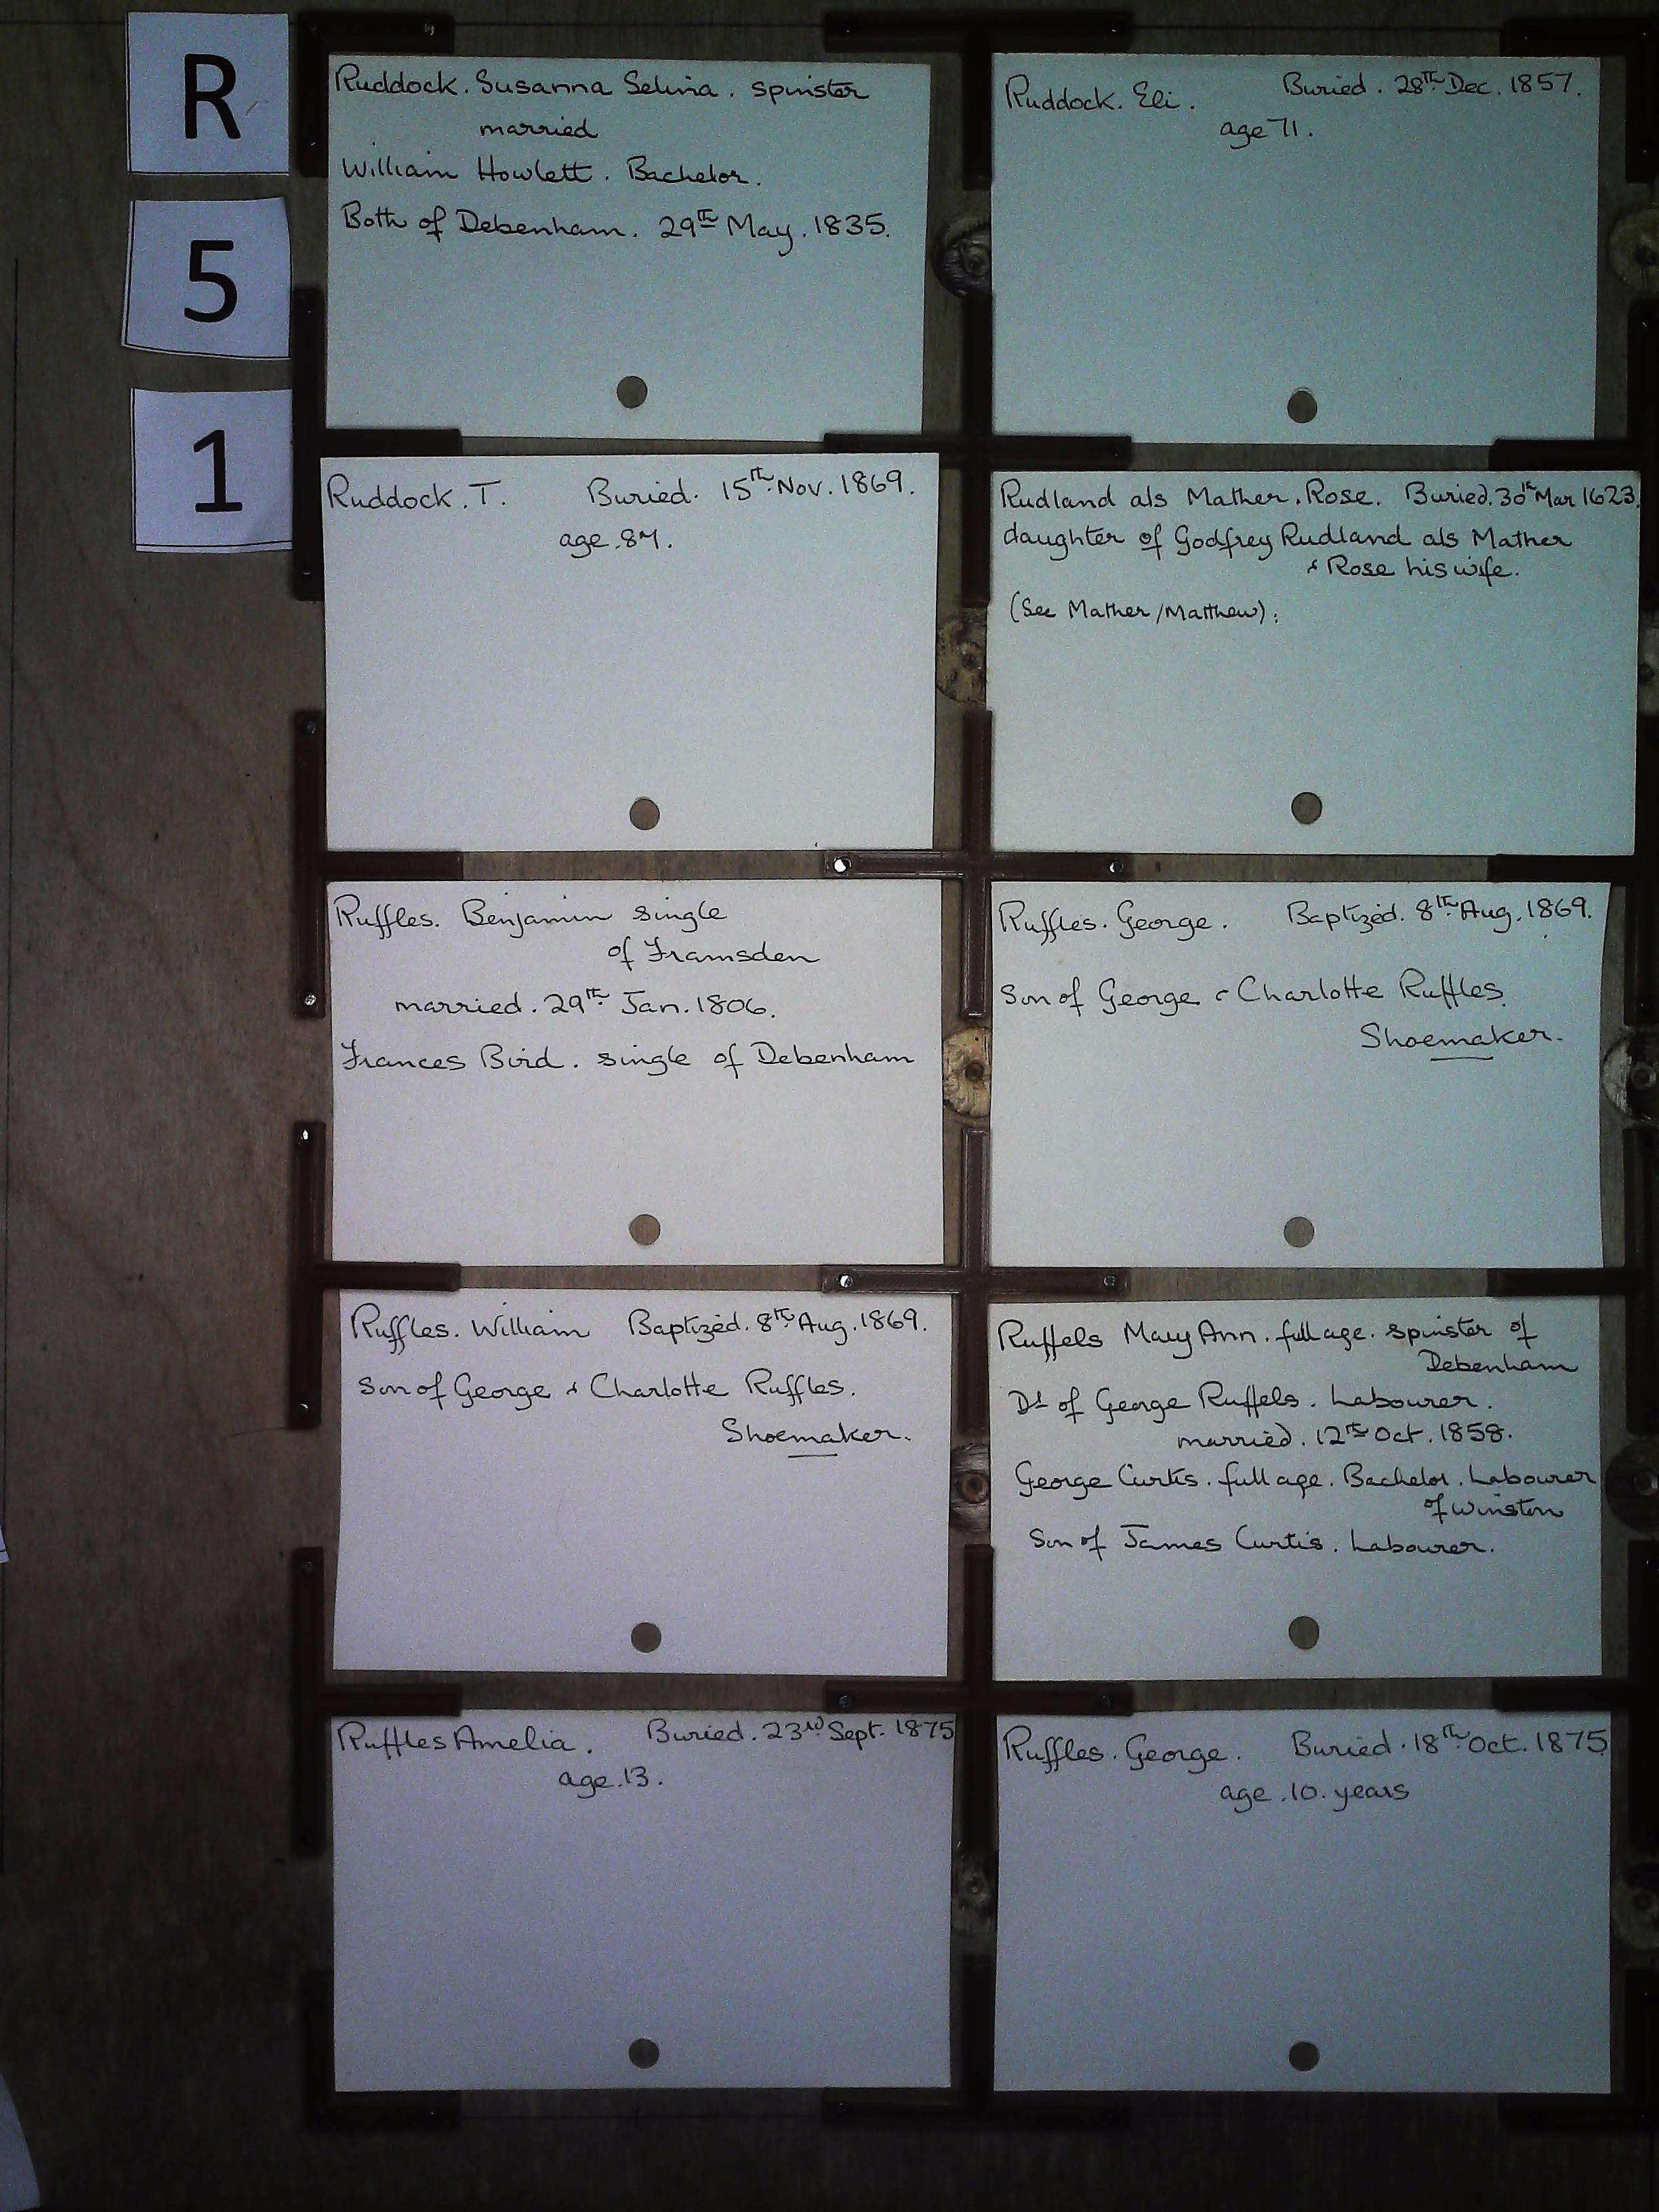 R
5
1
Ruddock. Susanna Selina. spinster
married
William Howlett. Bachelor.
Both of Debenham. 29th May. 1835.
Ruddock. Eli. Buried. 28th Dec. 1857.
age 71.
Ruddock. T. Buried. 15th Nov. 1869.
age.87.
Rudland als Mather. Rose. Buried. 30th Mar 1623.
daughter of Godfrey Rudland als Mather
& Rose his wife.
(See Mather/Matthew).
Ruffles. Benjamin single
of Framsden
married. 29th Jan. 1806.
Frances Bird. single of Debenham
Ruffles. George. Baptized. 8th Aug. 1869.
Son of George & Charlotte Ruffles.
Shoemaker.
Ruffles. William Baptized. 8th Aug. 1869.
Son of George & Charlotte Ruffles.
Shoemaker.
Ruffels Mary Ann. full age. spinster of
Debenham
Dt of George Ruffels. Labourer.
married. 12th Oct. 1858.
George Curtis. full age. Bachelor. Labourer
of Winston
Son of James Curtis. Labourer.
Ruffles Amelia. Buried. 23rd Sept. 1875
age.13.
Ruffles. George. Buried. 18th Oct. 1875
age.10.years